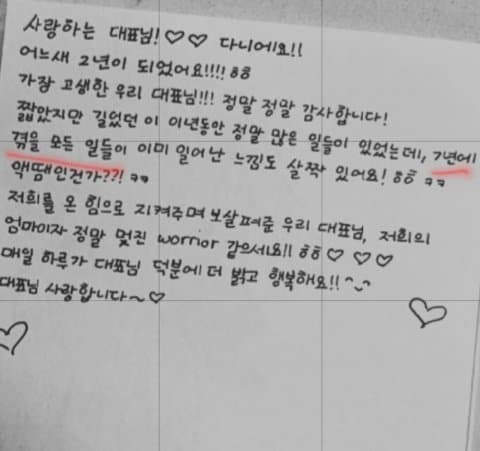 사랑하는 대표님!♡♡ 다니에요!!
어느새 2년이 되었어요!!!! ㅎㅎ
가장 고생한 우리 대표님!!! 정말 정말 감사합니다!
짧았지만 길었던 이 이년동안 정말 많은 일들이 있었는데, 7년에
겪을 모든 일들이 이미 일어난 느낌도 살짝 있어요! ㅎㅎ ㅋㅋ
액땜인건가??! ㅋㅋ
저희를 온 힘으로 지켜주며 보살펴준 우리 대표님, 저희의
엄마이자 정말 멋진 worrior 같으세요!! ㅎㅎ♡ ♡ ♡
매일 하루가 대표님 덕분에 더 밝고 행복해요!! ^ᴗ^
대표님 사랑합니다~♡